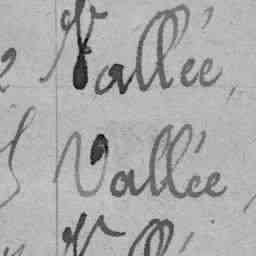 Vallée,
Vallée,